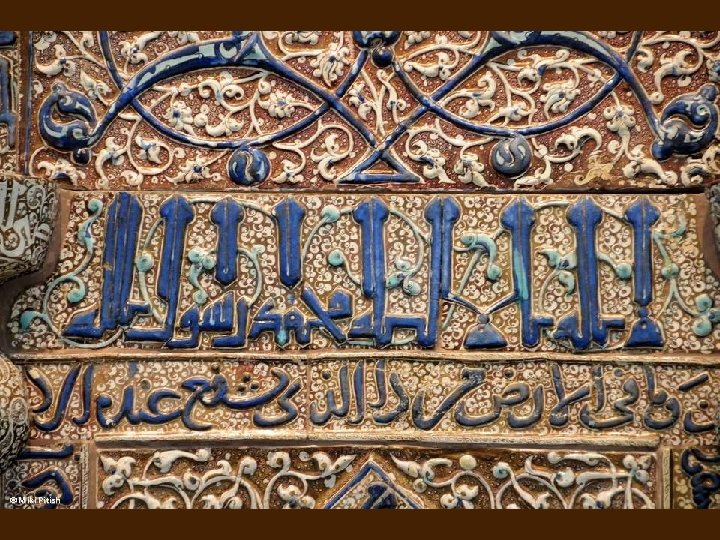 لا اله الا الله محمد رسول الله
وما في الارض من ذا الذي يشفع عنده الا
© Miki Pitish